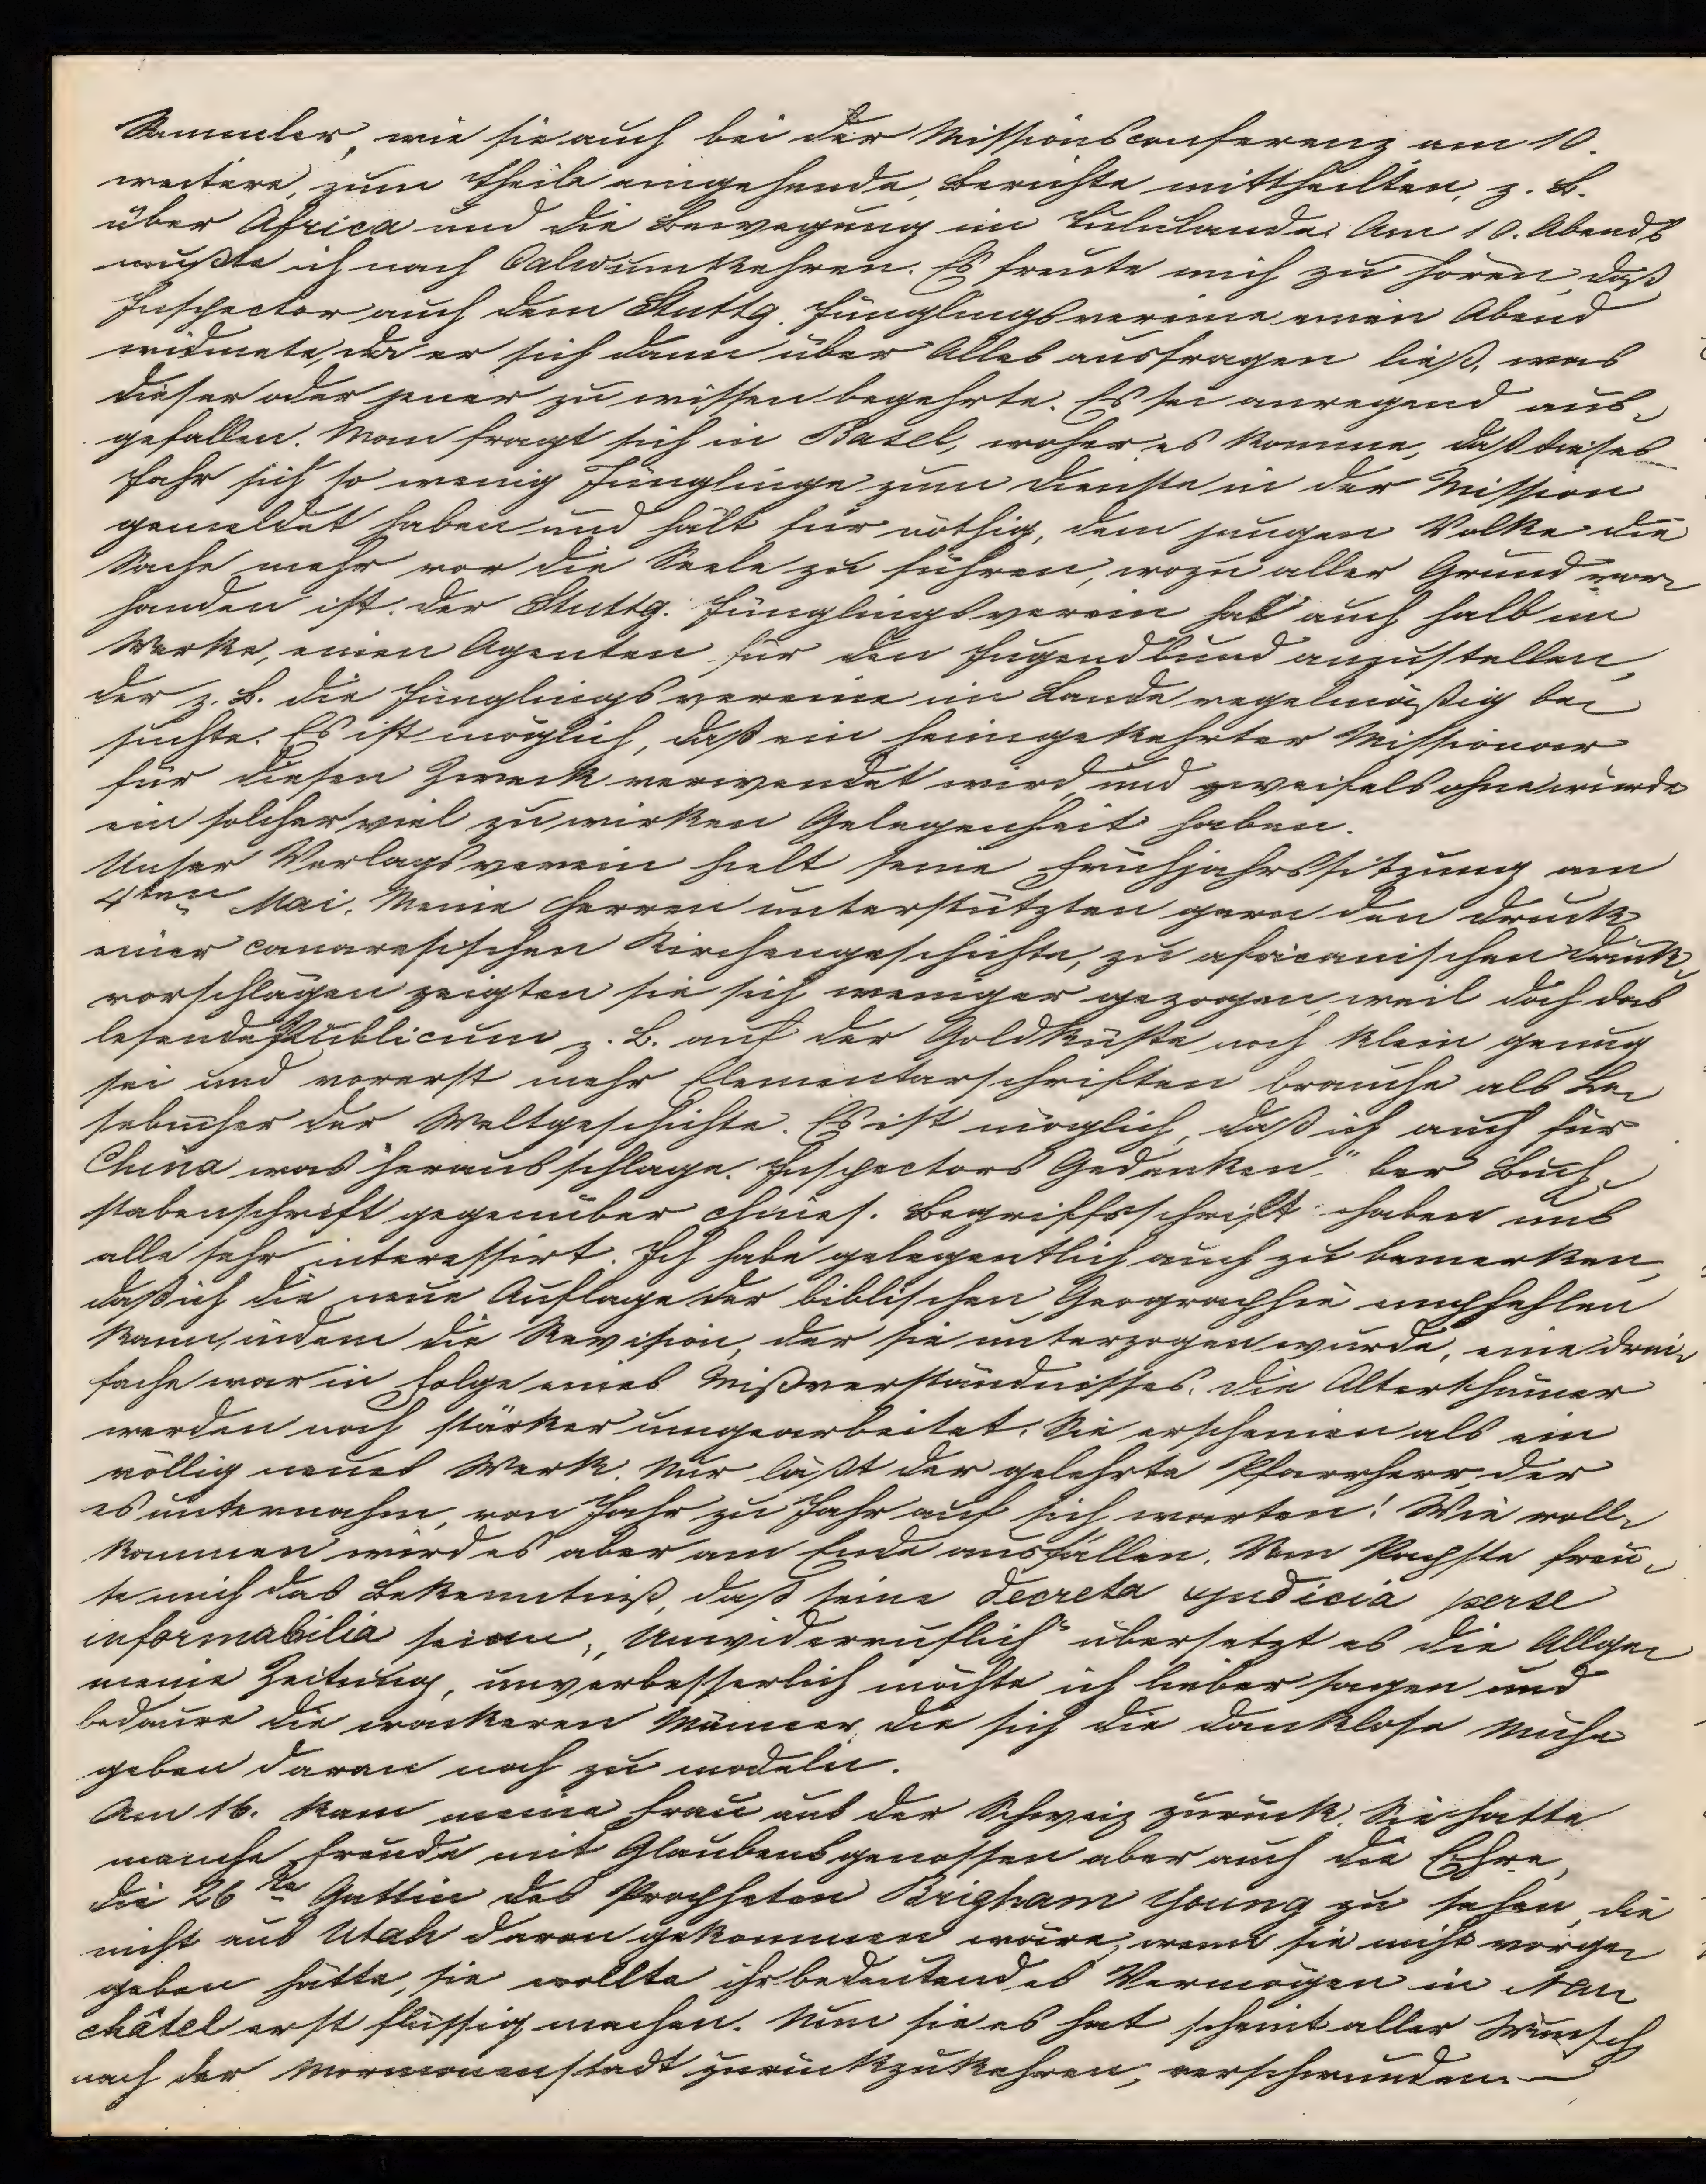 Sammler, wie sie auch bei der Missionsconferenz am 10.
weitere, zum Theile eingehende, Berichte mittheilten, z. B.
über Africa und die Bewegung im Zululande. Am 10. Abends
mußte ich nach Calw umkehren. Es freute mich zu hören, daß
Inspector auch dem Stuttg. Jünglingsvereine einen Abend
widmete, da er sich dann über Alles ausfragen ließ, was
dieser oder jener zu wissen begehrte. Es sei anregend aus-
gefallen. Man fragt sich in Basel, woher es komme, daß dieses
Jahr sich so wenig Jünglinge zum Dienste in der Mission
gemeldet haben und hält für nöthig, dem jungen Volke die
Sache mehr vor die Seele zu führen, wozu aller Grund vor-
handen ist. Der Stuttg. Jünglingsverein hat auch halb im
Werke, einen Agenten für den Jugendbund anzustellen,
der z. B. die Jünglingsvereine im Lande regelmäßig be-
suchte. Es ist möglich, daß ein heimgekehrter Missionar
für diesen Zweck verwendet wird, und zweifelsohne würde
ein solcher viel zu wirken Gelegenheit haben.
Unser Verlagsverein hielt seine Frühjahrssitzung am
4ten Mai. Meine Herren unterstützten gern den Druck
einer canaresischen Kirchengeschichte, zu africanischen Druck-
vorschlägen zeigten sie sich weniger gezogen, weil doch das
lesende Publicum z. B. auf der Goldküste noch klein genug
sei und vorerst mehr Elementarschriften brauche als Le-
sebücher der Weltgeschichte. Es ist möglich, daß ich auch für
China was herausschlage. Inspectors Gedanken über Buch-
stabenschrift gegenüber chines. Begriffsschrift haben uns
alle sehr interessirt. Ich habe gelegentlich auch zu bemerken,
daß ich die neue Auflage der biblischen Geographie empfehlen
kann, indem die Revision, der sie unterzogen wurde, eine drei-
fache war in Folge eines Mißverständnisses. Die Alterthümer
werden noch stärker umgearbeitet. Sie erscheinen als ein
völlig neues Werk. Nur läßt der gelehrte Pfarrherr, der
es unternahm, von Jahr zu Jahr auf sich warten! Wie voll-
kommen wird es aber am Ende ausfallen. Vom Papste freu-
te mich das Bekenntniß, daß seine decreta judicia per se
informabilia seien, „Unwiderruflich“ übersetzt es die Allge-
meine Zeitung, unverbesserlich möchte ich lieber sagen und
bedaure die wackeren Männer, die sich die danklose Mühe
geben daran noch zu modeln.
Am 16. kam meine Frau aus der Schweiz zurück. Sie hatte
manche Freude mit Glaubensgenossen aber auch die Ehre,
die 26te Gattin des Propheten Brigham Young zu sehen, die
nicht aus Utah davon gekommen wäre, wenn sie nicht vorge-
geben hätte, sie wollte ihr bedeutendes Vermögen in Neu-
châtel erst flüssig machen. Nun sie es hat scheint aller Wunsch
nach der Mormonenstadt zurückzukehren, verschwunden. —